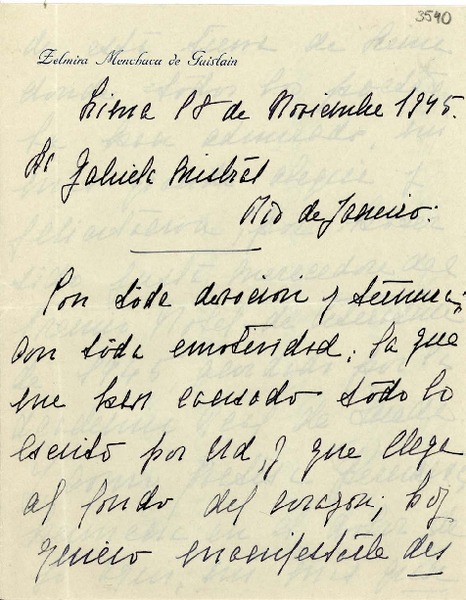 3540
Zelmira Menchaca de Guislain
Lima 18 de Noviembre 1945.
Gabriela Mistral
Rio de Janeiro:
Con toda devocion y ternura,
con toda emotividad; la que
me han causado todo lo
escrito por Ud, y que llega
al fondo del corazon; hoy
quiero manifestarle des